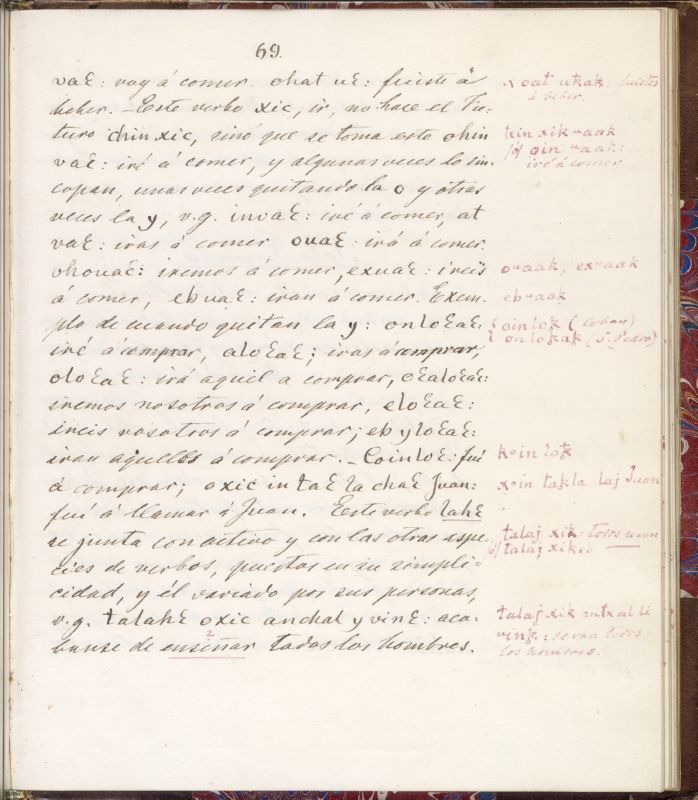 69.
vaꜫ: voy á comer. ohat uꜫ: fuiste á
beber. _ Este verbo xic, ir, no hace el Fu-
turo chinxic, sino que se toma este ohin
vaꜫ: iré á comer, y algunas veces lo sin-
copan, unas veces quitando la o y otras
veces la y, v.g. invaꜫ: iré á comer, at
vaꜫ: iras á comer ovaꜫ: irá á comer.
ohovaꜫ: iremos á comer, exvaꜫ: ireis
á comer, ebvaꜫ: iran á comer. Exem-
plo de cuando quitan la y: onloꜫaꜫ:
iré á comprar, aloꜫaꜫ; iras á comprar,
oloꜫaꜫ: irá aquel a comprar, oꜫaloꜫaꜫ:
iremos nosotros á comprar, eloꜫaꜫ:
ireis vosotros á comprar; eb yloꜫaꜫ:
iran aquellos á comprar. _ Coinloꜫ: fui
á comprar; oxic in taꜫla chaꜫ Juan:
fui á llamar á Juan. Este verbo lahꜫ
se junta con activo y con las otras espe-
cies de verbos, puestos en su simpli-
cidad, y él variado por sus personas,
v.g. talahꜫ oxic anchal y vinꜫ: aca-
banse de enseñar todos los hombres.
2
xoat ukak: fuistes
á beber.
txin xik waak
/ó/ oin waak:
iré á comer
owaak, exwaak
ebwaak
oinlok (Coban)
onlokak (S. Pedro)
koin lok
xoin takla laj Juan
talaj xik: todos
/ó/ talaj xik
talaj xik entxal li
vink: seran todos
los hombres.